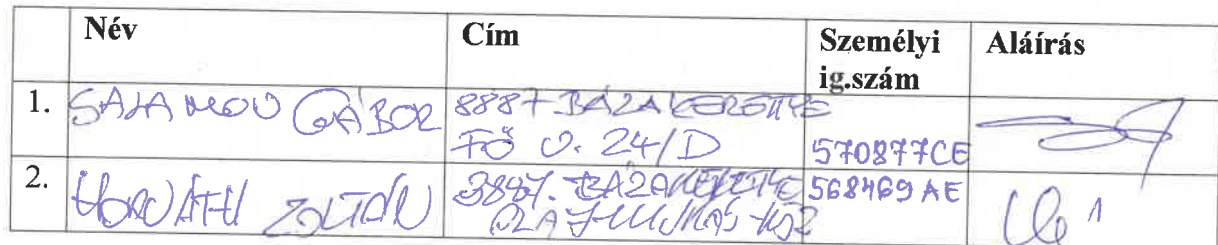 Név Cím Személyi ig.szám Aláírás
1. GÁBOR 8887 BÁZAKERETTYE
FŐ U. 24/D 570877CE
2. HORVÁTH ZOLTÁN BÁZAKERETTYE 568469AE